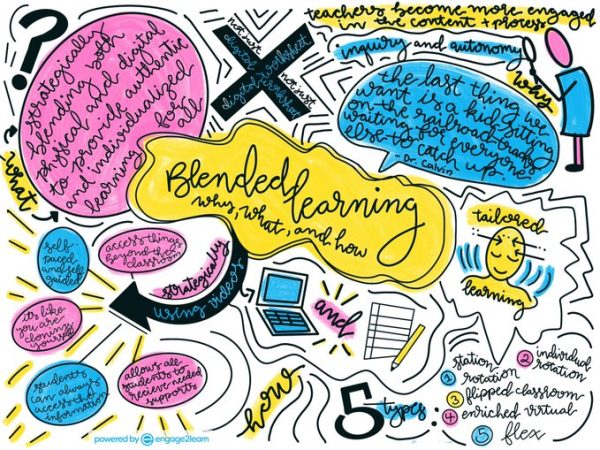 teachers become more engaged
in the content + process
?
strategically
blending both
physical and digital
to provide authentic
and individualized
learning for
all
what
not just
digital worksheet
not just
digital worksheet
inquiry and autonomy
why
the last thing we
want is a kid sitting
on the railroad tracks
waiting for everyone
else to catch up
- Dr. Calvin
Blended learning
why, what, and how
self-
paced
and self
guided
access things
beyond the
classroom
strategically
using videos
it's like
you are
cloning
yourself
students
can always
access the
information
allows all
students to
recieve needed
supports
and
tailored
learning
how
5 types:
1 station
rotation
2 individual
rotation
3 flipped classroom
4 enriched virtual
5 flex
powered by engage2learn